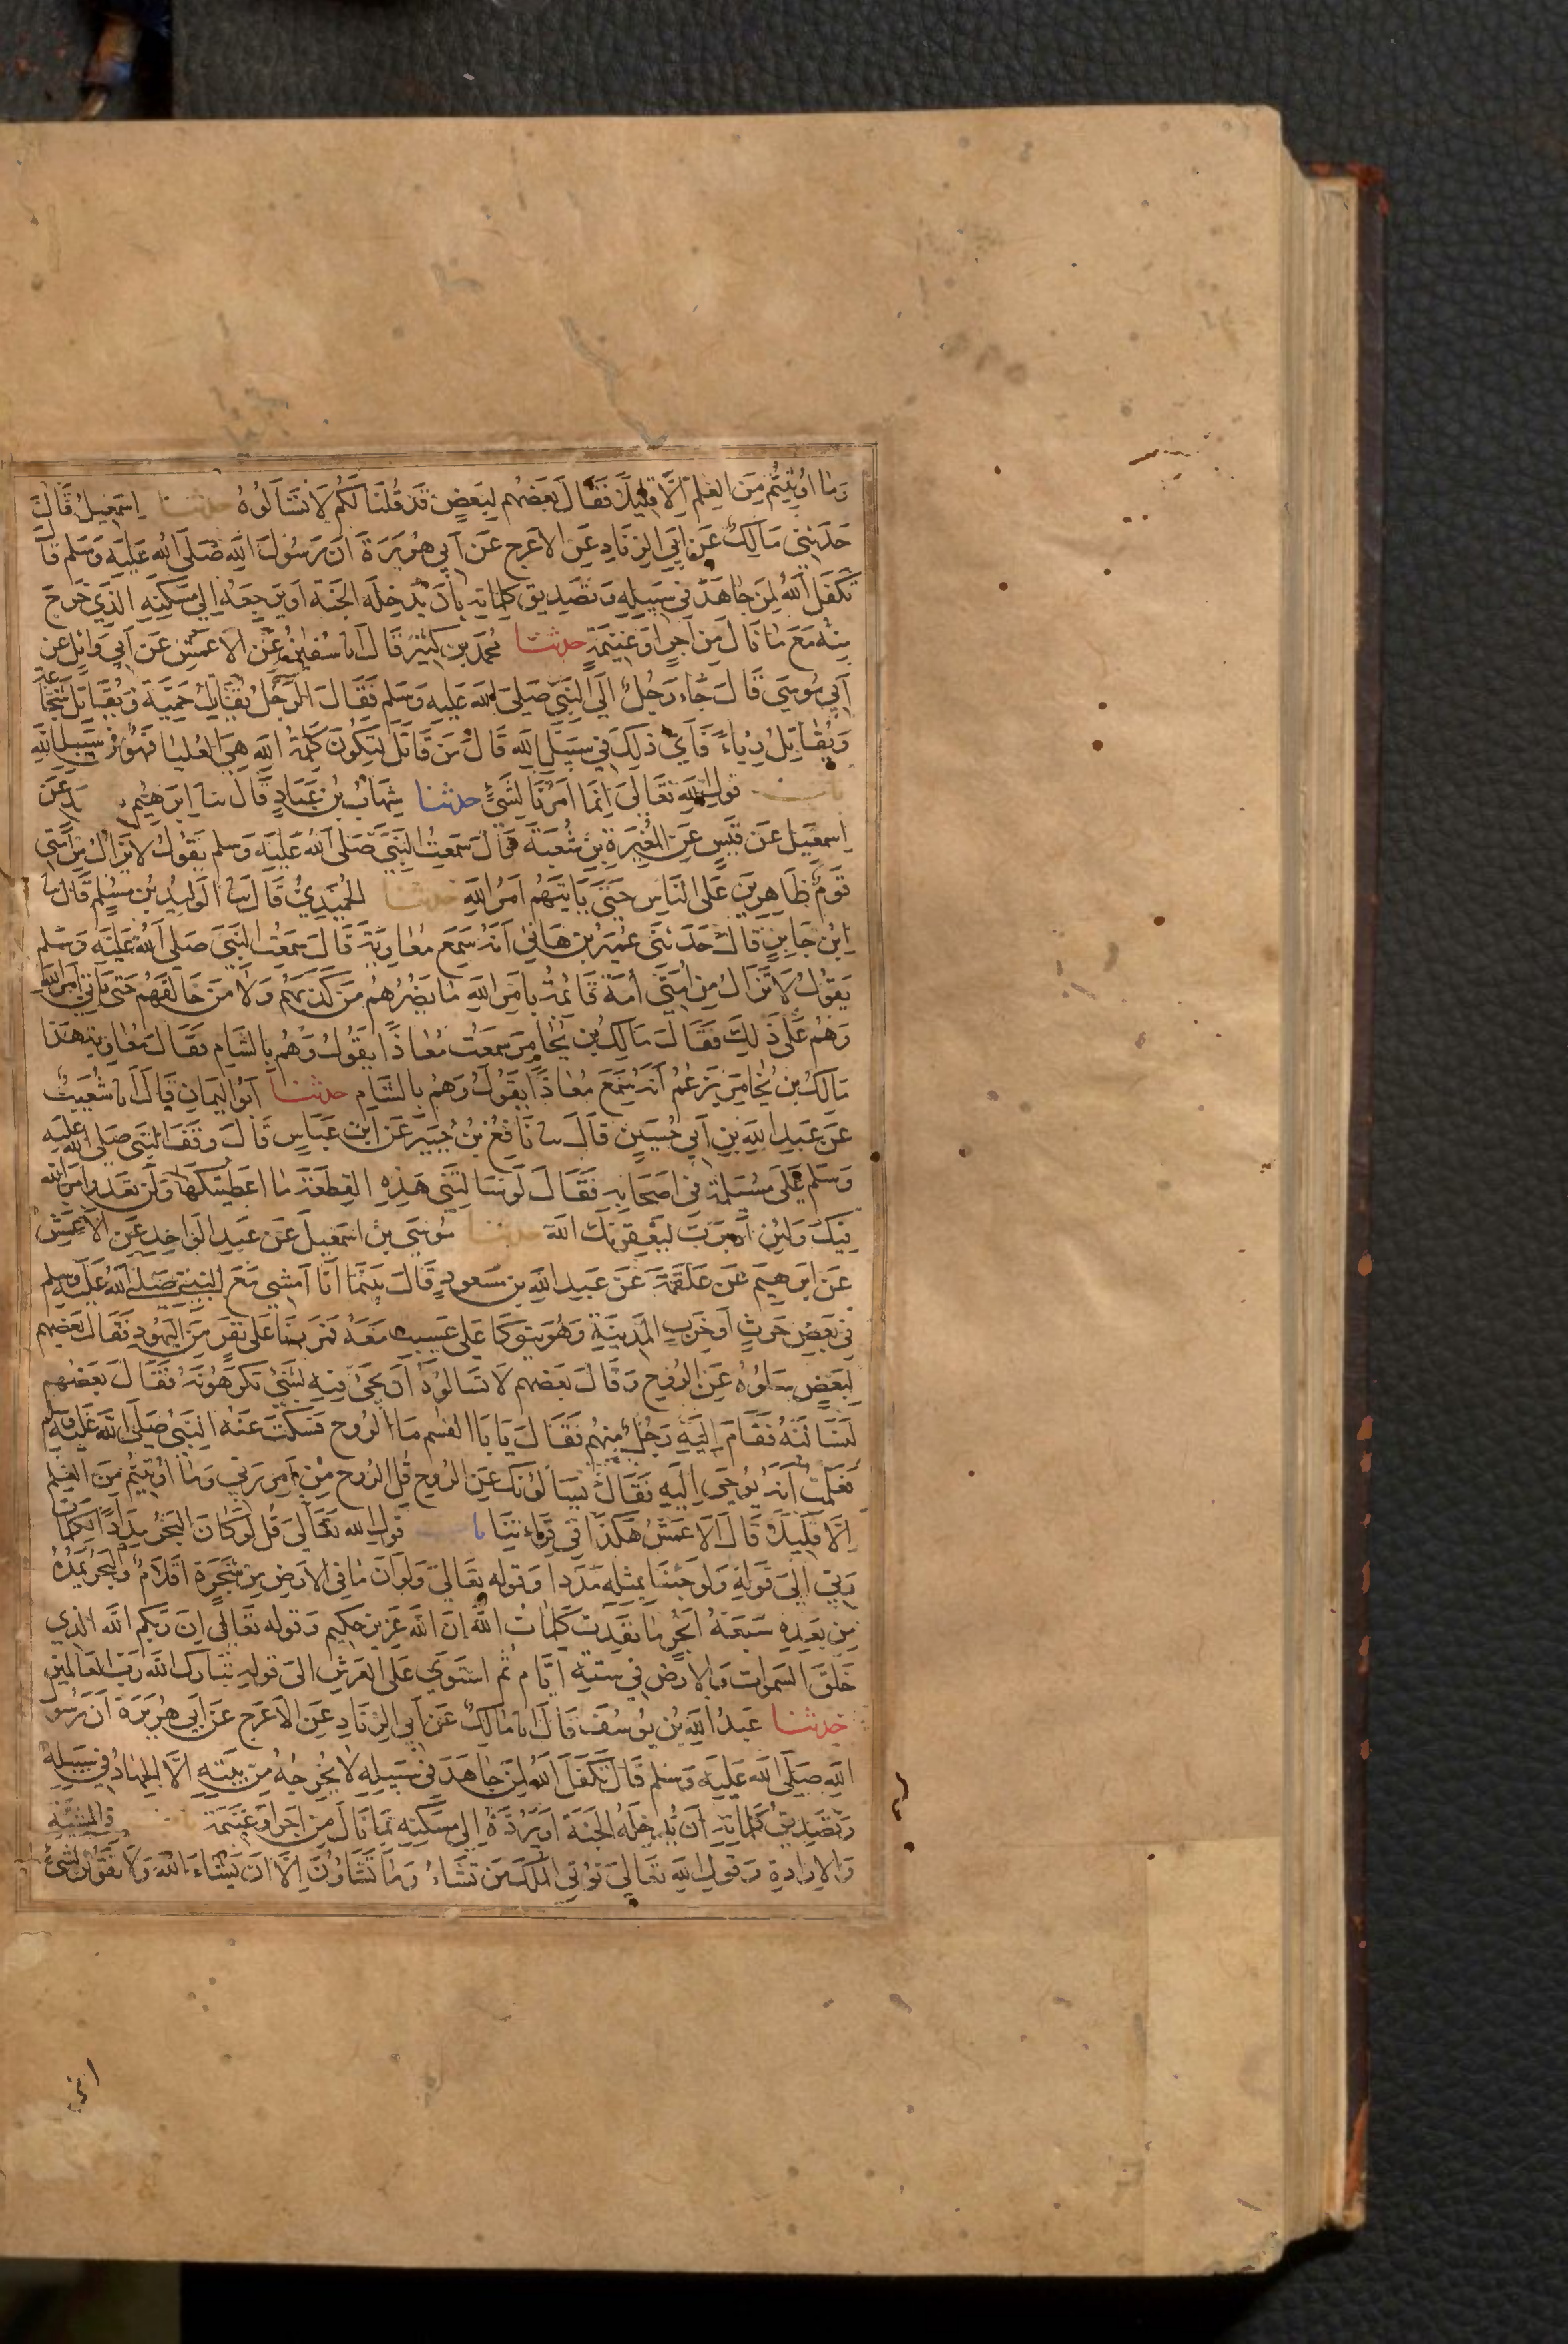 وَمَا اُوتِيتُم مِنَ العِلمِ اِلَّا قَلِيلاً فَقَالَ بَعضُهُم لِبَعضٍ قَد قُلنَا لَكُم لَا تَسْاَلُوهُ حدثنا اِسمعِيلُ قَالَ
حَدَثَنِي مَالِكٌ عَن اَبِي الزِنَادِ عَنِ الاَعرَجِ عَن اَبِي هُرَيرَةَ اَنَ رَسُولَ اللهِ صَلَى اللهُ عَلَيهِ وَسَلم قَالَ
تَكَفَلَ اللهُ لِمَن جَاهَدَ فِي سَبِيلِهِ وَتَصدِيقِ كَلِمَاتِهِ بِاَن يُدخِلَهُ الجَنَةَ اَو يَرجِعَهُ اِلي مَسكَنِهِ الَذِي خَرَجَ
مِنهُ مَعَ مَا نَالَ مِن اَجرٍ اَو غَنِيمَةٍ حدثنا مُحَمَدُ بن كَثِيرٍ قَالَ انا سُفيَانُ عَنِ الاَعمَشِ عَن اَبِي وَائِلٍ عَن
اَبِي مُوسَي قَالَ جَاءَ رَجُلٌ اِلَي النَبِيِ صَلى اللهُ عَلَيهِ وَسَلم فَقَالَ الرَجُلُ يُقَاتِلُ حَمِيَّةً وَيُقَاتِلُ شَجَاعَةً
وَيُقَاتِلُ رِيَاءً فَاَيُ ذَلِكَ فِي سَبِيلِ اللهِ قَالَ مَن قَاتَلَ لِتَكُونَ كَلِمَةُ اللهِ هِيَ العُليَا فَهُوَ فِي سَبِيلِ اللهِ
باب قَولِ اللهِ تَعَالَى اِنَمَا اَمرُنَا لِشَيءٍ حدثنا شِهَابُ بنُ عَبَادٍ قَالَ ثنا اِبرَهِيمُ عَن
اِسمعِيلَ عَن قَيسٍ عَنِ المُغِيرَةِ بنِ شُعبَةَ قَالَ سَمِعتُ النَبِيَ صَلى اللهُ عَلَيهِ وَسَلم يَقُولُ لا يَزَالُ مِن اُمَتِي
قَومٌ ظَاهِرِينَ عَلَى النَاسِ حَتَى يَاتِيَهُم اَمرُ اللهِ حدثنا الحُمَيدِيُ قَالَ ثنا الوَلِيدُ بن مُسلِمٍ قَالَ ثنا
اِبنُ جَابِرٍ قَالَ حَدَثَنِي عُمَيرُ بن هَانِئٍ اَنَهُ سَمِعَ مُعَاوِيَةَ قَالَ سَمِعتُ النَبِيَ صَلى اللهُ عَلَيهِ وَسَلم
يَقُولُ لَا تَزَالُ مِن اُمَتِي اُمَةٌ قَائِمَةٌ بِاَمرِ اللهِ مَا يَضُرُهُم مَن كَذَبَهُم وَلَا مَن خَالَفَهُم حَتَى يَاتِيَ اَمرُ اللهِ
وَهُم عَلَى ذَلِكَ فَقَالَ مَالِكُ بن يُخَامِرَ سَمِعتُ مُعَاذًا يَقُولُ وَهُم بِالشَامِ فَقَالَ مُعَاوِيَةُ هَذَا
مَالِكُ بن يُخَامِرَ يَزعُمُ اَنَهُ سَمِعَ مُعَاذًا يَقُولُ وَهُم بِالشَامِ حدثنا اَبُو اليَمَانِ قَالَ انا شُعَيبٌ
عَن عَبدِ اللهِ بنِ اَبِي حُسَينٍ قَالَ ثنا نَافِعُ بن جُبَيرٍ عَنِ ابنِ عَبَاسٍ قَالَ وَقَفَ النَبِيُ صَلى اللهُ عَلَيهِ
وَسَلم عَلَى مُسَيلِمَةَ فِي اَصحَابِهِ فَقَالَ لَو سَالتَنِي هَذِهِ القِطعَةَ مَا اَعطَيتُكَهَا وَلَن تَعدُوَ اَمرَ اللهِ
فِيكَ وَلَئِن اَدبَرتَ لَيَعقِرَنَكَ اللهُ حدثنا مُوسَي بن اِسمَعِيلَ عَن عَبدِ الوَاحِدِ عَنِ الاَعمَشِ
عَن اِبرَهِيمَ عَن عَلقَمَةَ عَن عَبدِ اللهِ بن مَسعودٍ قَالَ بَينَمَا اَنَا اَمشِي مَعَ النَبِيِ صَلى اللهُ عَلَيهِ وَسلم
فِي بَعضِ حَرثٍ اَو خَرِبِ المَدِينَةِ وَهُوَ يَتَوَكَا عَلَى عَسِيبٍ مَعَهُ فَمَرَرنَا عَلَى نَفَرٍ مِنَ اليَهُودِ فَقَالَ بَعضُهُم
لِبَعضٍ سَلُوهُ عَنِ الرُوحِ وَقَالَ بَعضُهُم لَا تَسَالُوهُ اَن يَجِيءَ فِيهِ بِشَيءٍ تَكرَهُونَهُ فَقَالَ بَعضُهُم
لَنَسَالَنَهُ فَقَامَ اِلَيهِ رَجُلٌ مِنهُم فَقَالَ يَا بَا القسم مَا الرُوحُ فَسَكَتَ عَنهُ النَبِيُ صَلى اللهُ عَلَيهِ وَسلم
فَعَلِمتُ اَنَهُ يُوحَى اِلَيهِ فَقَالَ يَسَالُونَكَ عَنِ الرُوحِ قُلِ الرُوحُ مِن اَمرِ رَبِي وَمَا اُوتِيتُم مِنَ العِلمِ
اِلَّا قَلِيلاً قَالَ الاَعمَشُ هَكَذَا فِي قِرَاءَتِنَا باب قَولِ اللهِ تَعَالَى قُل لَو كَانَ البَحرُ مِدَادًا لِكَلِمَاتِ
رَبِي اِلَى قَولِهِ وَلَو جِئنَا بِمِثلِهِ مَدَدًا وَقَولِه تَعَالَى وَلَو اَنَ مَا فِي الاَرضِ مِن شَجَرَةٍ اَقلَامٌ وَالبَحرُ يَمُدُهُ
مِن بَعدِهِ سَبعَةُ اَبحُرٍ مَا نَفِدَت كَلِمَاتُ اللهِ اِنَ اللهَ عَزِيزٌ حَكِيم وَقَوله تَعَالَى اِنَ رَبَكُم اللهُ الَذِي
خَلَقَ السَموَاتِ وَالاَرضَ فِي سِتَةِ اَيَامٍ ثُم استَوَي عَلَى العَرشِ اِلَى قَولِهِ تَبَارَكَ اللهُ رَبُ العَالَمِين
حدثنا عَبدُ اللهِ بن يُوسُفَ قَالَ انا مَالِكٌ عَن اَبِي الزِنَادِ عَنِ الاَعرَجِ عَن اَبِي هُرَيرَةَ اَنَ رَسُولَ
اللهِ صَلَى اللهُ عَلَيهِ وَسَلم قَالَ تَكَفَلَ اللهُ لِمَن جَاهَدَ فِي سَبِيلِهِ لَا يُخرِجُهُ مِن بَيتِهِ اِلَّا الجِهَادُ فِي سَبِيلِهِ
وَتَصدِيقُ كَلِمَاتِهِ اَن يُدخِلَهُ الجَنَةَ اَو يَرُدَهُ اِلي مَسكَنِهِ بِمَا نَالَ مِن اَجرٍ اَو غَنِيمَةٍ باب فِي المَشِيئَةِ
وَالاِرَادَةِ وَقَولِ اللهِ تَعَالَى تُوتِي المُلكَ مَن تَشَاءُ وَمَا تَشَاؤُنَ اِلَّا اَن يَشَاءَ اللهُ وَلَا تَقُولَنَ لِشَيءٍ
اني